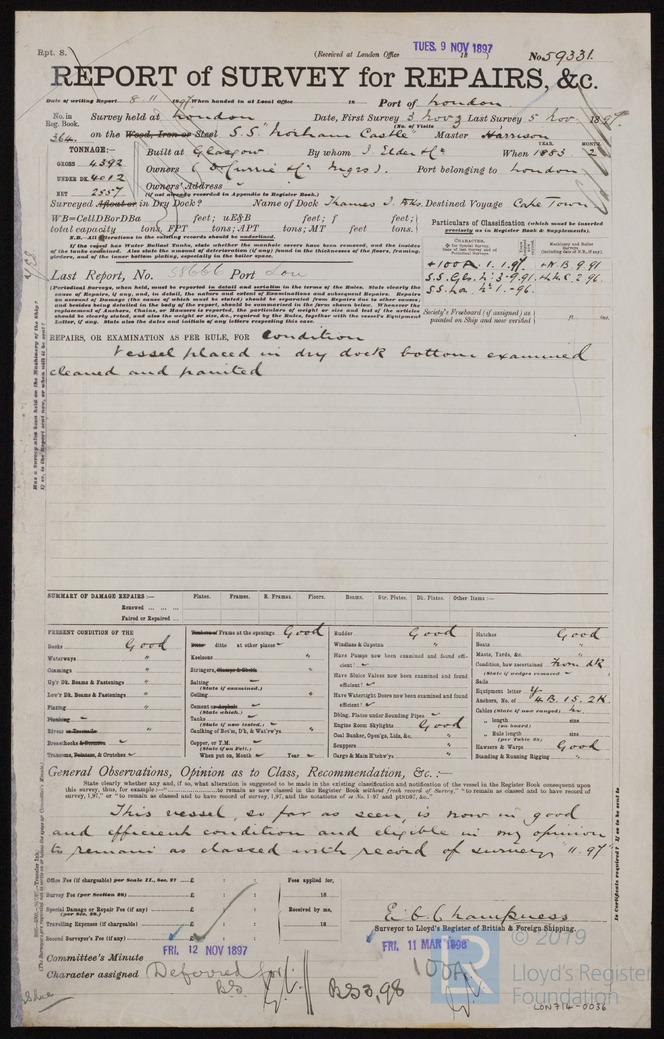 Rpt. 8.
(Received at London Office TUES. 9 NOV 1897 18 )
No. 59331.
REPORT of SURVEY for REPAIRS, &c.
Date of writing Report 8 11 1897. When handed in at Local Office 18 Port of London
No. in Reg. Book. Survey held at London Date, First Survey 3 Nov 9 Last Survey 5 Nov 1897.
(No. of Visits )
364. on the Wood, Iron or Steel S.S. "Norham Castle" Master Harrison
TONNAGE:— Built at Glasgow By whom J. Elder & Co When 1883 2
YEAR. MONTH.
GROSS 4392
UNDER DK. 4012
NET 2557
Owners D. Currie & Co (Mngrs). Port belonging to London
Owners' Address
(If not already recorded in Appendix to Register Book.)
Surveyed Afloat or in Dry Dock? Name of Dock Thames Destined Voyage Cape Town
WB=CellDBorDBa feet; uE&B feet; f feet;
total capacity tons, FPT tons; APT tons; MT feet tons.
N.B.—All alterations in the existing records should be underlined.
If the vessel has Water Ballast Tanks, state whether the manhole covers have been removed, and the insides
of the tanks examined. Also state the amount of deterioration (if any) found in the thicknesses of the floors, framing,
girders, and of the inner bottom plating, especially in the boiler space.
Particulars of Classification (which must be inserted
precisely as in Register Book & Supplements).
+100A 1. 1.97. +N.B. 9.91
S.S. Gls. No 3-9.91.
S.S. Lo. No 1.-96.
Last Report, No. 58666 Port Lon
(Periodical Surveys, when held, must be reported in detail and seriatim in the terms of the Rules. State clearly the
causes of Repairs, if any, and, in detail, the nature and extent of Examinations and subsequent Repairs. Repairs
on account of Damage (the cause of which must be stated) should be separated from Repairs due to other causes;
and besides being detailed in the body of the report, should be summarised in the form shown below. Whenever the
replacement of Anchors, Chains, or Hawsers is reported, the particulars of weight or size and test of the articles
should be clearly stated, and also the weight or size, &c., required by the Rules, together with the vessel's Equipment
Letter, if any. State also the dates and initials of any letters respecting this case.
Society's Freeboard (if assigned) as
painted on Ship and now verified ft. ins.
REPAIRS, OR EXAMINATION AS PER RULE, FOR Condition
Vessel placed in dry dock bottom examined
cleaned and painted
SUMMARY OF DAMAGE REPAIRS:— Plates. Frames. R. Frames. Floors. Beams. Str. Plates. Dk. Plates. Other Items:—
Renewed ... ... ...
Faired or Repaired ...
PRESENT CONDITION OF THE
Decks Good
Waterways "
Comings "
Up'r Dk. Beams & Fastenings "
Low'r Dk. Beams & Fastenings "
Plating "
Planking
Rivets or Treenails "
Breasthooks & Pointers
Transoms, Pointers, & Crutches
Timbers or Frame at the openings Good
Ditto ditto at other places
Keelsons "
Stringers, Clamps & Shelfs "
Salting
(State if examined.)
Ceiling "
Cement or Asphalt
(State which.)
Tanks
(State if now tested.)
Caulking of Bot'm, D'k, & Wat'rw'ys "
Copper, or Y.M.
(State if on Felt.)
When put on, Month Year
Rudder Good
Windlass & Capstan "
Have Pumps now been examined and found efficient?
Have Sluice Valves now been examined and found efficient?
Have Watertight Doors now been examined and found efficient?
Dblng. Plates under Sounding Pipes
Engine Room Skylights Good
Coal Bunker, Open'gs, Lids, &c. "
Scuppers "
Cargo & Main H'tchw'ys "
Hatches Good
Boats "
Masts, Yards, &c. "
Condition, how ascertained From dk
(State if wedges removed
Sails
Equipment letter y
Anchors, No. of 4 B. 1 S. 2 K.
Cables (State if now ranged) No.
" length size
(on board)
" Rule length size
(per Table 22)
Hawsers & Warps Good
Standing & Running Rigging "
General Observations, Opinion as to Class, Recommendation, &c.:—
State clearly whether any and, if so, what alteration is suggested to be made in the existing classification and notification of the vessel in the Register Book consequent upon
This vessel, so far as seen, is now in good
and efficient condition and eligible in my opinion
to remain as classed with record of survey "11.97"
Office Fee (if chargeable) per Scale II., Sec. 27 ... £ : :
Survey Fee (per Section 28) ... £ : :
Special Damage or Repair Fee (if any) ... £ : :
(per Sec. 28.)
Travelling Expenses (if chargeable) ... £ : :
Second Surveyor's Fee (if any) ... £ : :
Fees applied for, 18
Received by me, 18
E. C. Champness
Surveyor to Lloyd's Register of British & Foreign Shipping.
FRI. 12 NOV 1897
FRI. 11 MAR 1898
Committee's Minute
Character assigned Deferred for
BS.
BS 3,98
100A
© 2019
Lloyd's Register
Foundation
LON714-0036